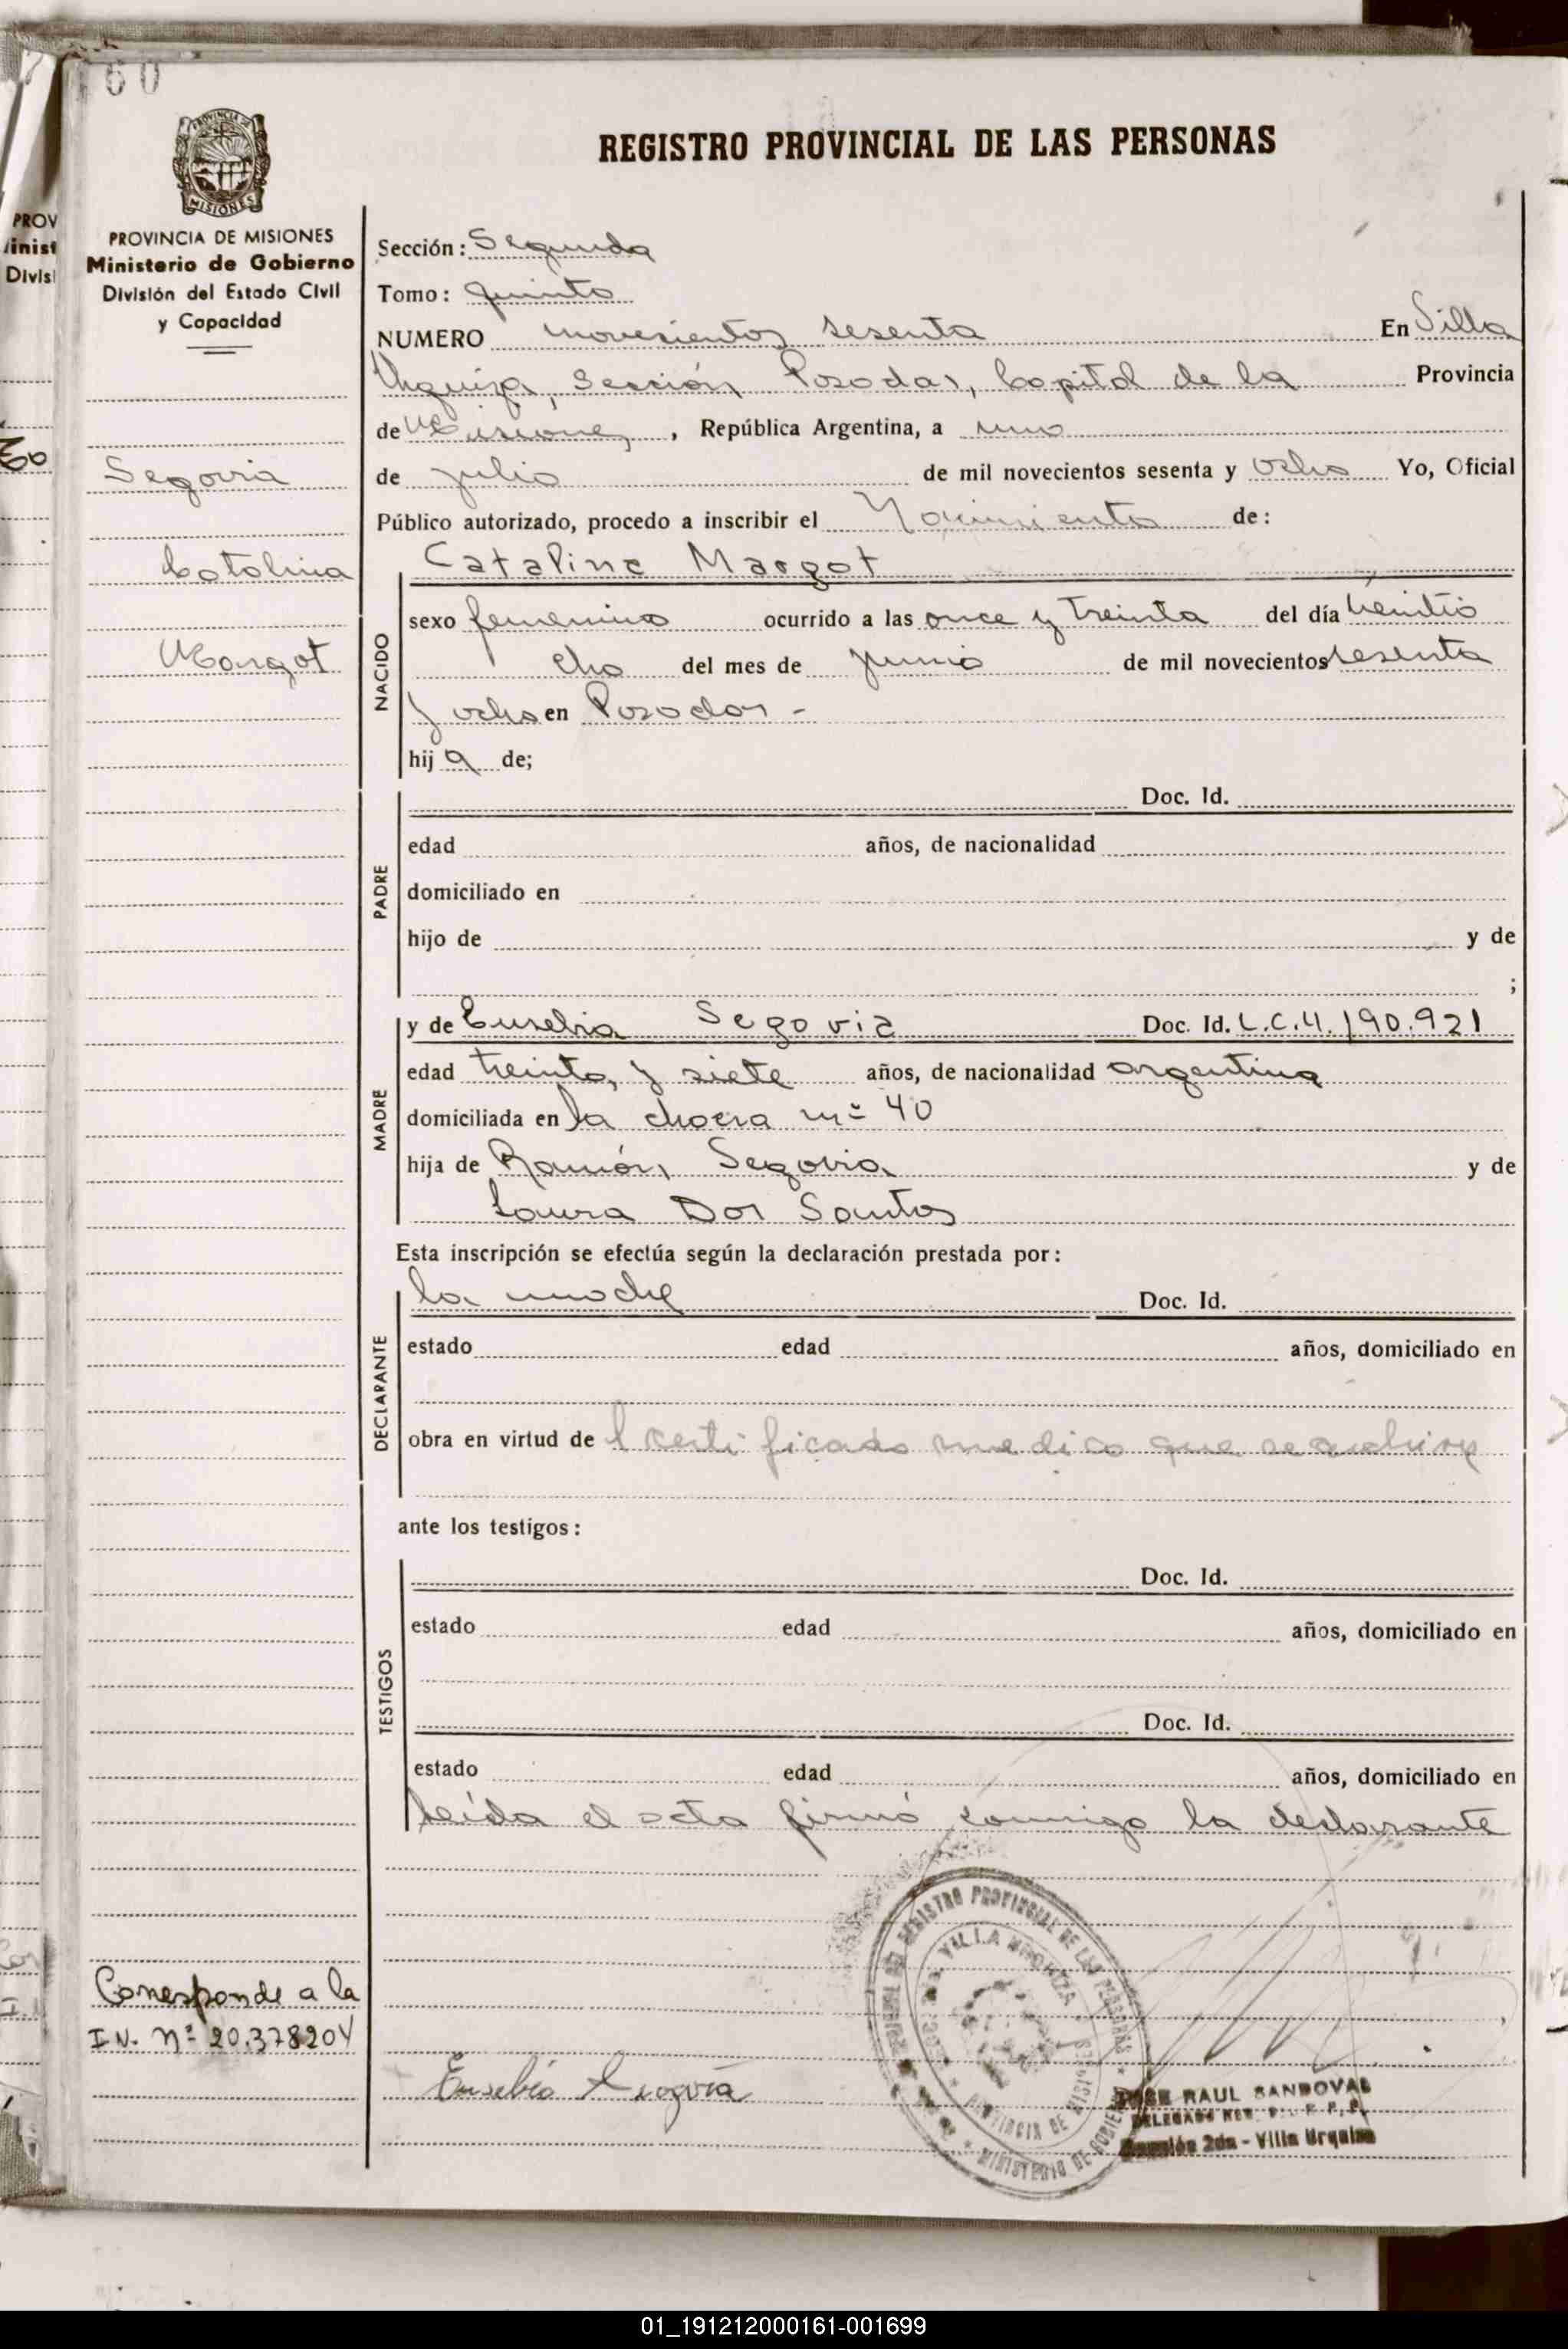 60
REGISTRO PROVINCIAL DE LAS PERSONAS
PROVINCIA DE
MISIONES
PROVINCIA DE MISIONES
Ministerio de Gobierno
División del Estado Civil
y Capacidad
PROV
Minist
Divisi
Segovia
Catalina
Margot
Sección: Segunda
Tomo: quinto
NUMERO novesientos sesenta En Villa
Urquiza, Sección Posadas, Capital de la Provincia
de Misiones, República Argentina, a uno
de julio de mil novecientos sesenta y ocho Yo, Oficial
Público autorizado, procedo a inscribir el Nacimiento de:
Catalina Margot
NACIDO
sexo femenino ocurrido a las once y treinta del día veintio
cho del mes de junio de mil novecientos sesenta
y ocho en Posadas -
hija de;
PADRE
Doc. Id.
edad años, de nacionalidad
domiciliado en
hijo de y de
;
MADRE
y de Eusebia Segovia Doc. Id. L.C.4.190.921
edad treinta y siete años, de nacionalidad argentina
domiciliada en la chacra nº 40
hija de Ramón Segovia y de
Laura Dos Santos
Esta inscripción se efectúa según la declaración prestada por:
DECLARANTE
la madre Doc. Id.
estado edad años, domiciliado en
obra en virtud de l certificado medico que se archiva
ante los testigos:
TESTIGOS
Doc. Id.
estado edad años, domiciliado en
Doc. Id.
estado edad años, domiciliado en
Leída el acta firmó conmigo la declarante
Corresponde a la
I N. Nº 20.378204
Eusebia Segovia
REGISTRO PROVINCIAL DE LAS PERSONAS
VILLA URQUIZA
PROVINCIA DE MISIONES
MINISTERIO DE GOBIERNO
JOSE RAUL SANDOVAL
Sección 2da - Villa Urquiza
01_191212000161-001699